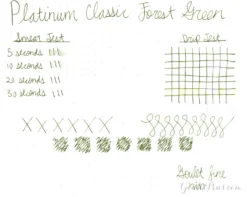 Platinum Classic Forest Green
Smear Test
Drip Test
5 seconds
10 seconds
20 seconds
30 seconds
XXXXXX
Goulet fine